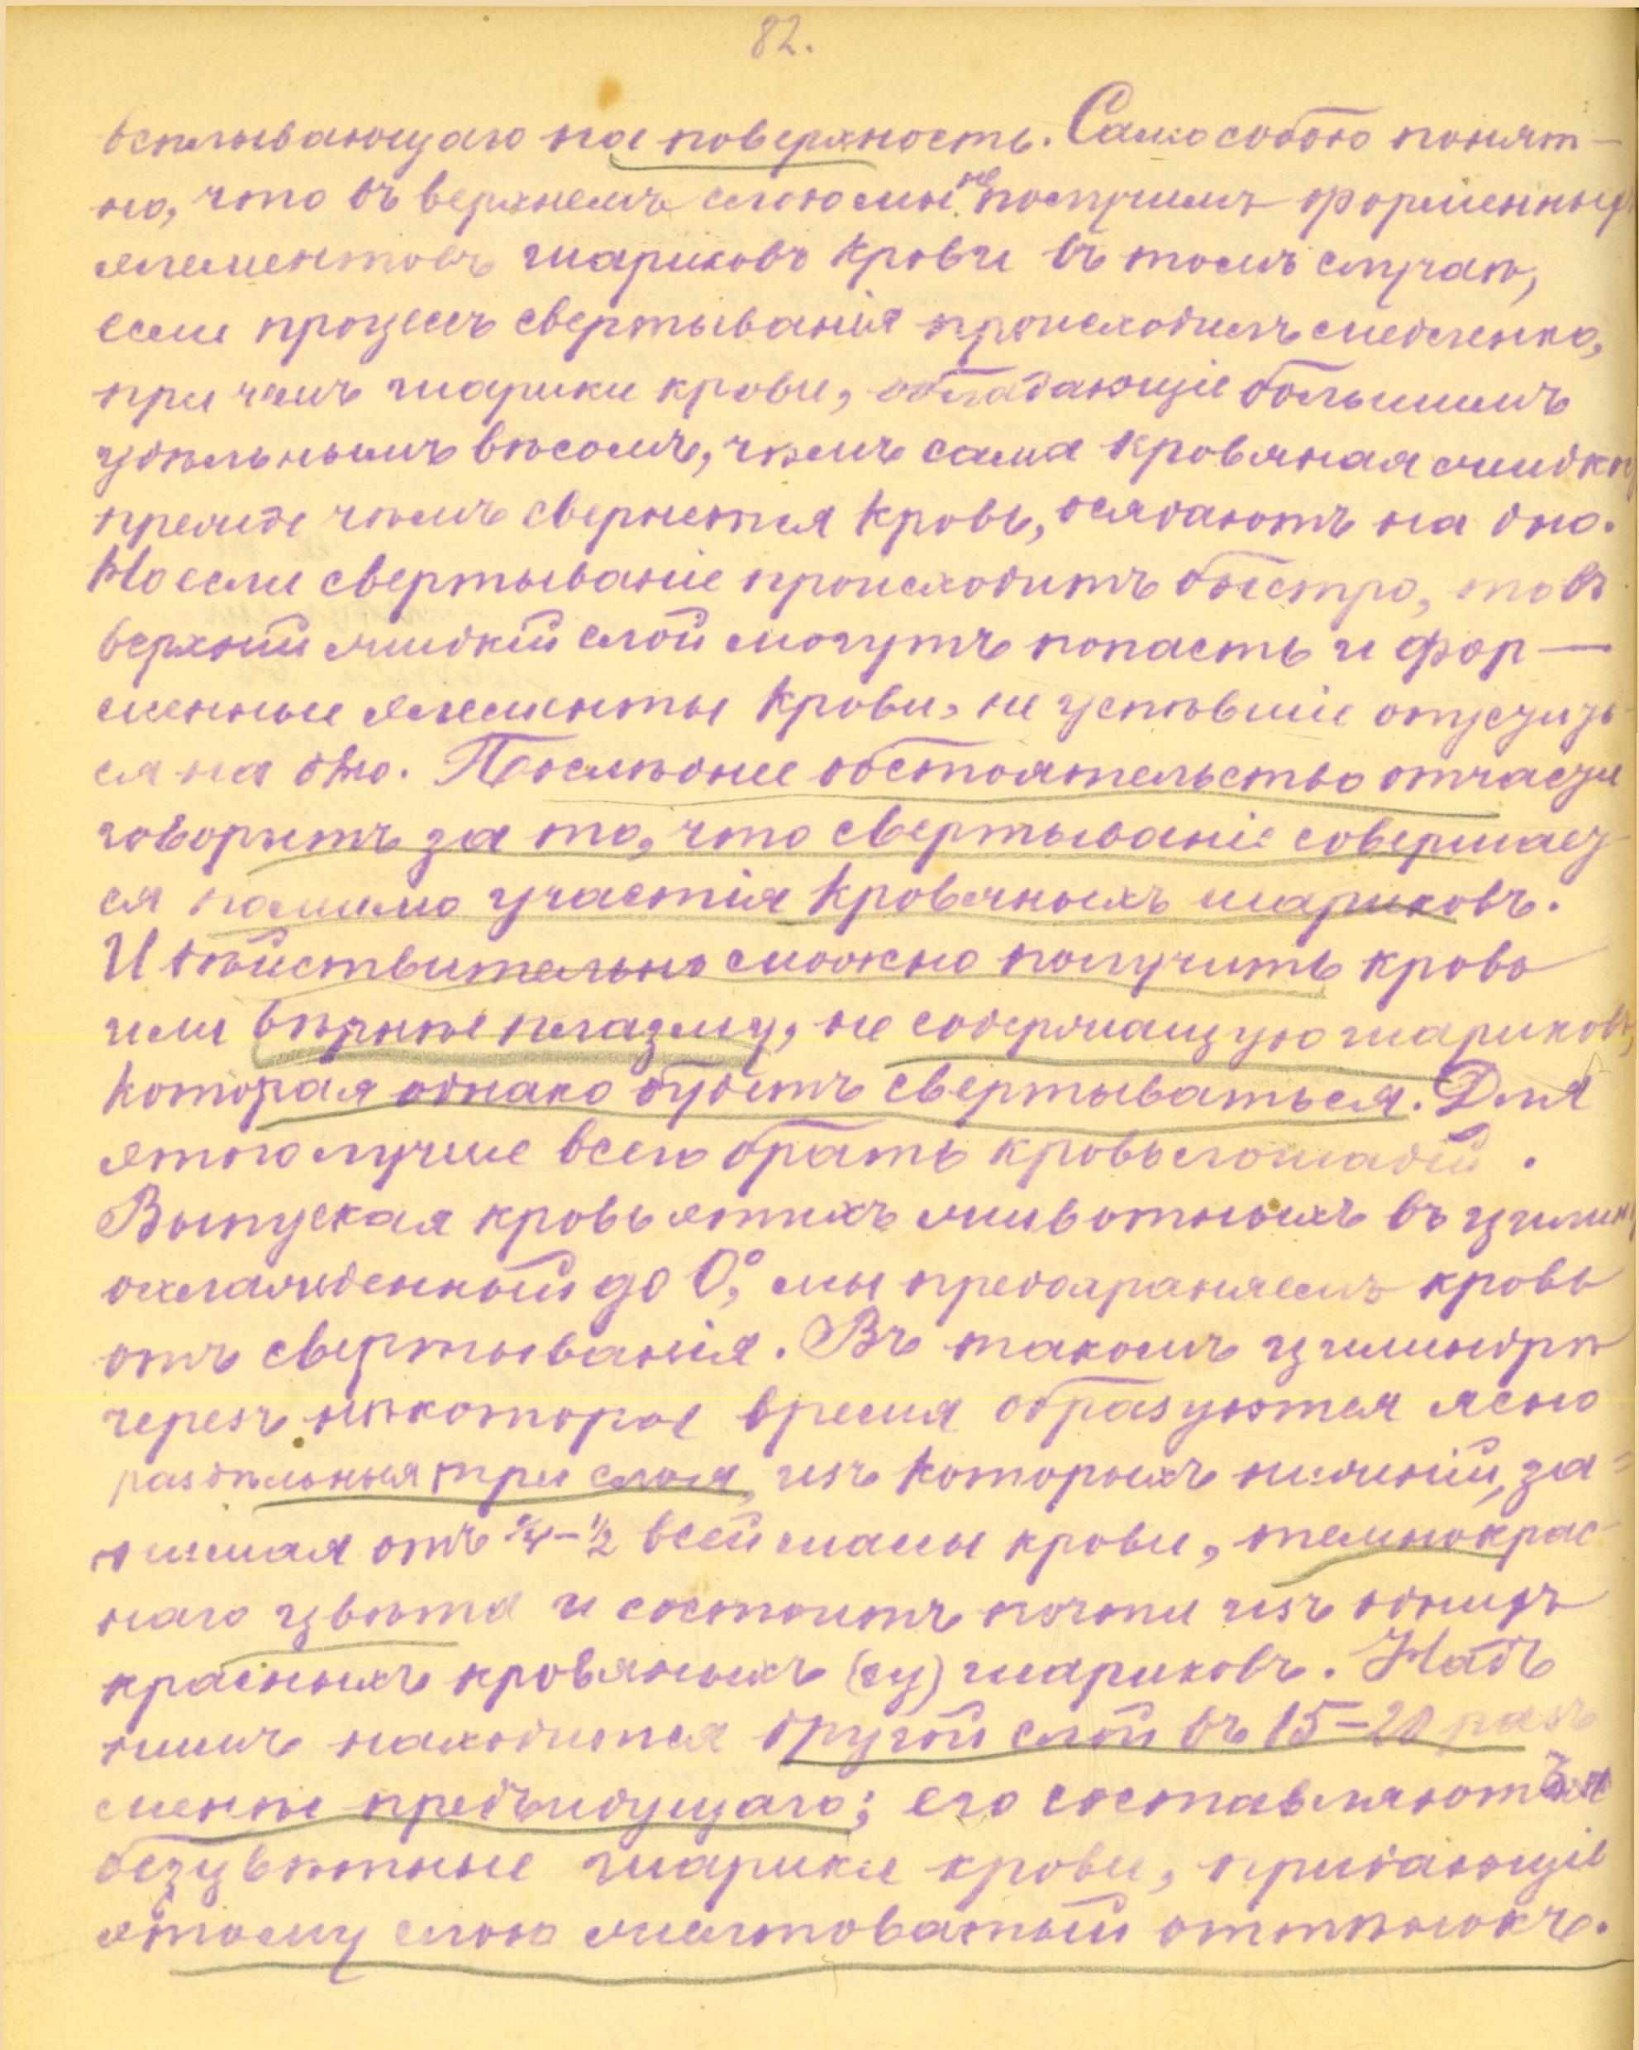 82.
всплывающаго на поверхность. Само собою понят-
но, что въ верхнемъ слою мы не получимъ форменныхъ
элементовъ шариковъ крови въ томъ случаѣ,
если процессъ свертыванія происходитъ медленно,
при чемъ шарики крови, обладающіе большимъ
удѣльнымъ вѣсомъ, чѣмъ сама кровяная жидк
прежде чѣмъ свернется кровь, осядаютъ на дно.
Но если свертываніе происходитъ быстро, то въ
верхній жидкій слой могутъ попасть и фор—
менные элементы крови, не успѣвшіе опустить-
ся на дно. Послѣднее обстоятельство отчасти
говоритъ за то, что свертываніе совершает-
ся помимо участія кровяныхъ шариковъ.
И дѣйствительно можно получить кровь
или вѣрнѣе плазму, не содержащую шариковъ,
которая однако будетъ свертываться. Для
этого лучше всего брать кровь лошадей .
Выпуская кровь этихъ животныхъ въ цилин
охлажденный до 0°, мы предохраняемъ кровь
отъ свертыванія. Въ такомъ цилиндрѣ
черезъ нѣкоторое время образуются ясно
раздѣльныя три слоя, изъ которыхъ нижній, за=
нимая отъ ¼–½ всей массы крови, темнокрас-
наго цвѣта и состоитъ почти изъ однихъ
красныхъ кровяныхъ шариковъ. Надъ
нимъ находится другой слой въ 15–20 разъ
менѣе предъидущаго; его составляютъ
безцвѣтные шарики крови, придающіе
этому слою желтоватый оттѣнокъ.